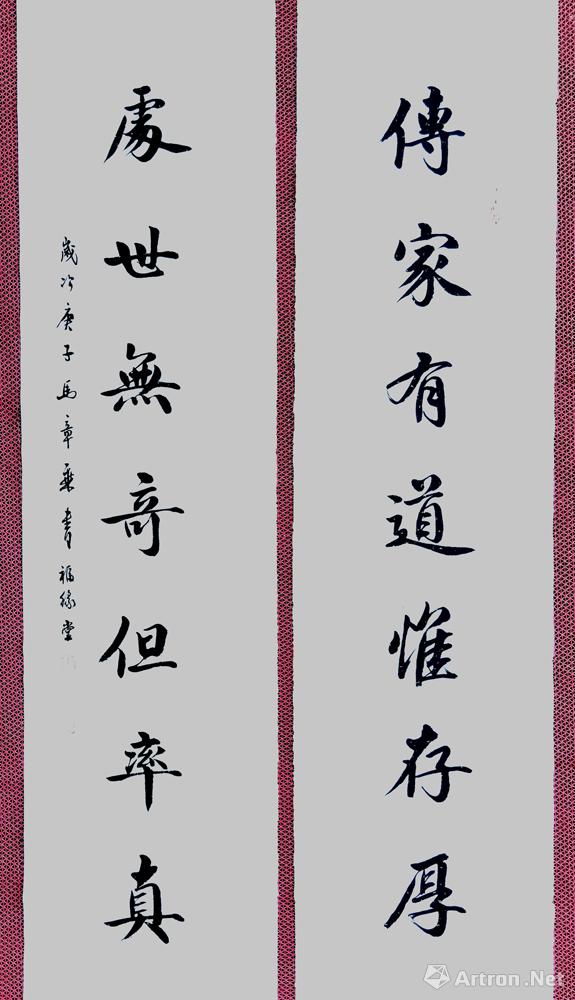 傳家有道惟存厚
處世無奇但率真
歲次庚子馬章乗書福緣堂
Artron.Net